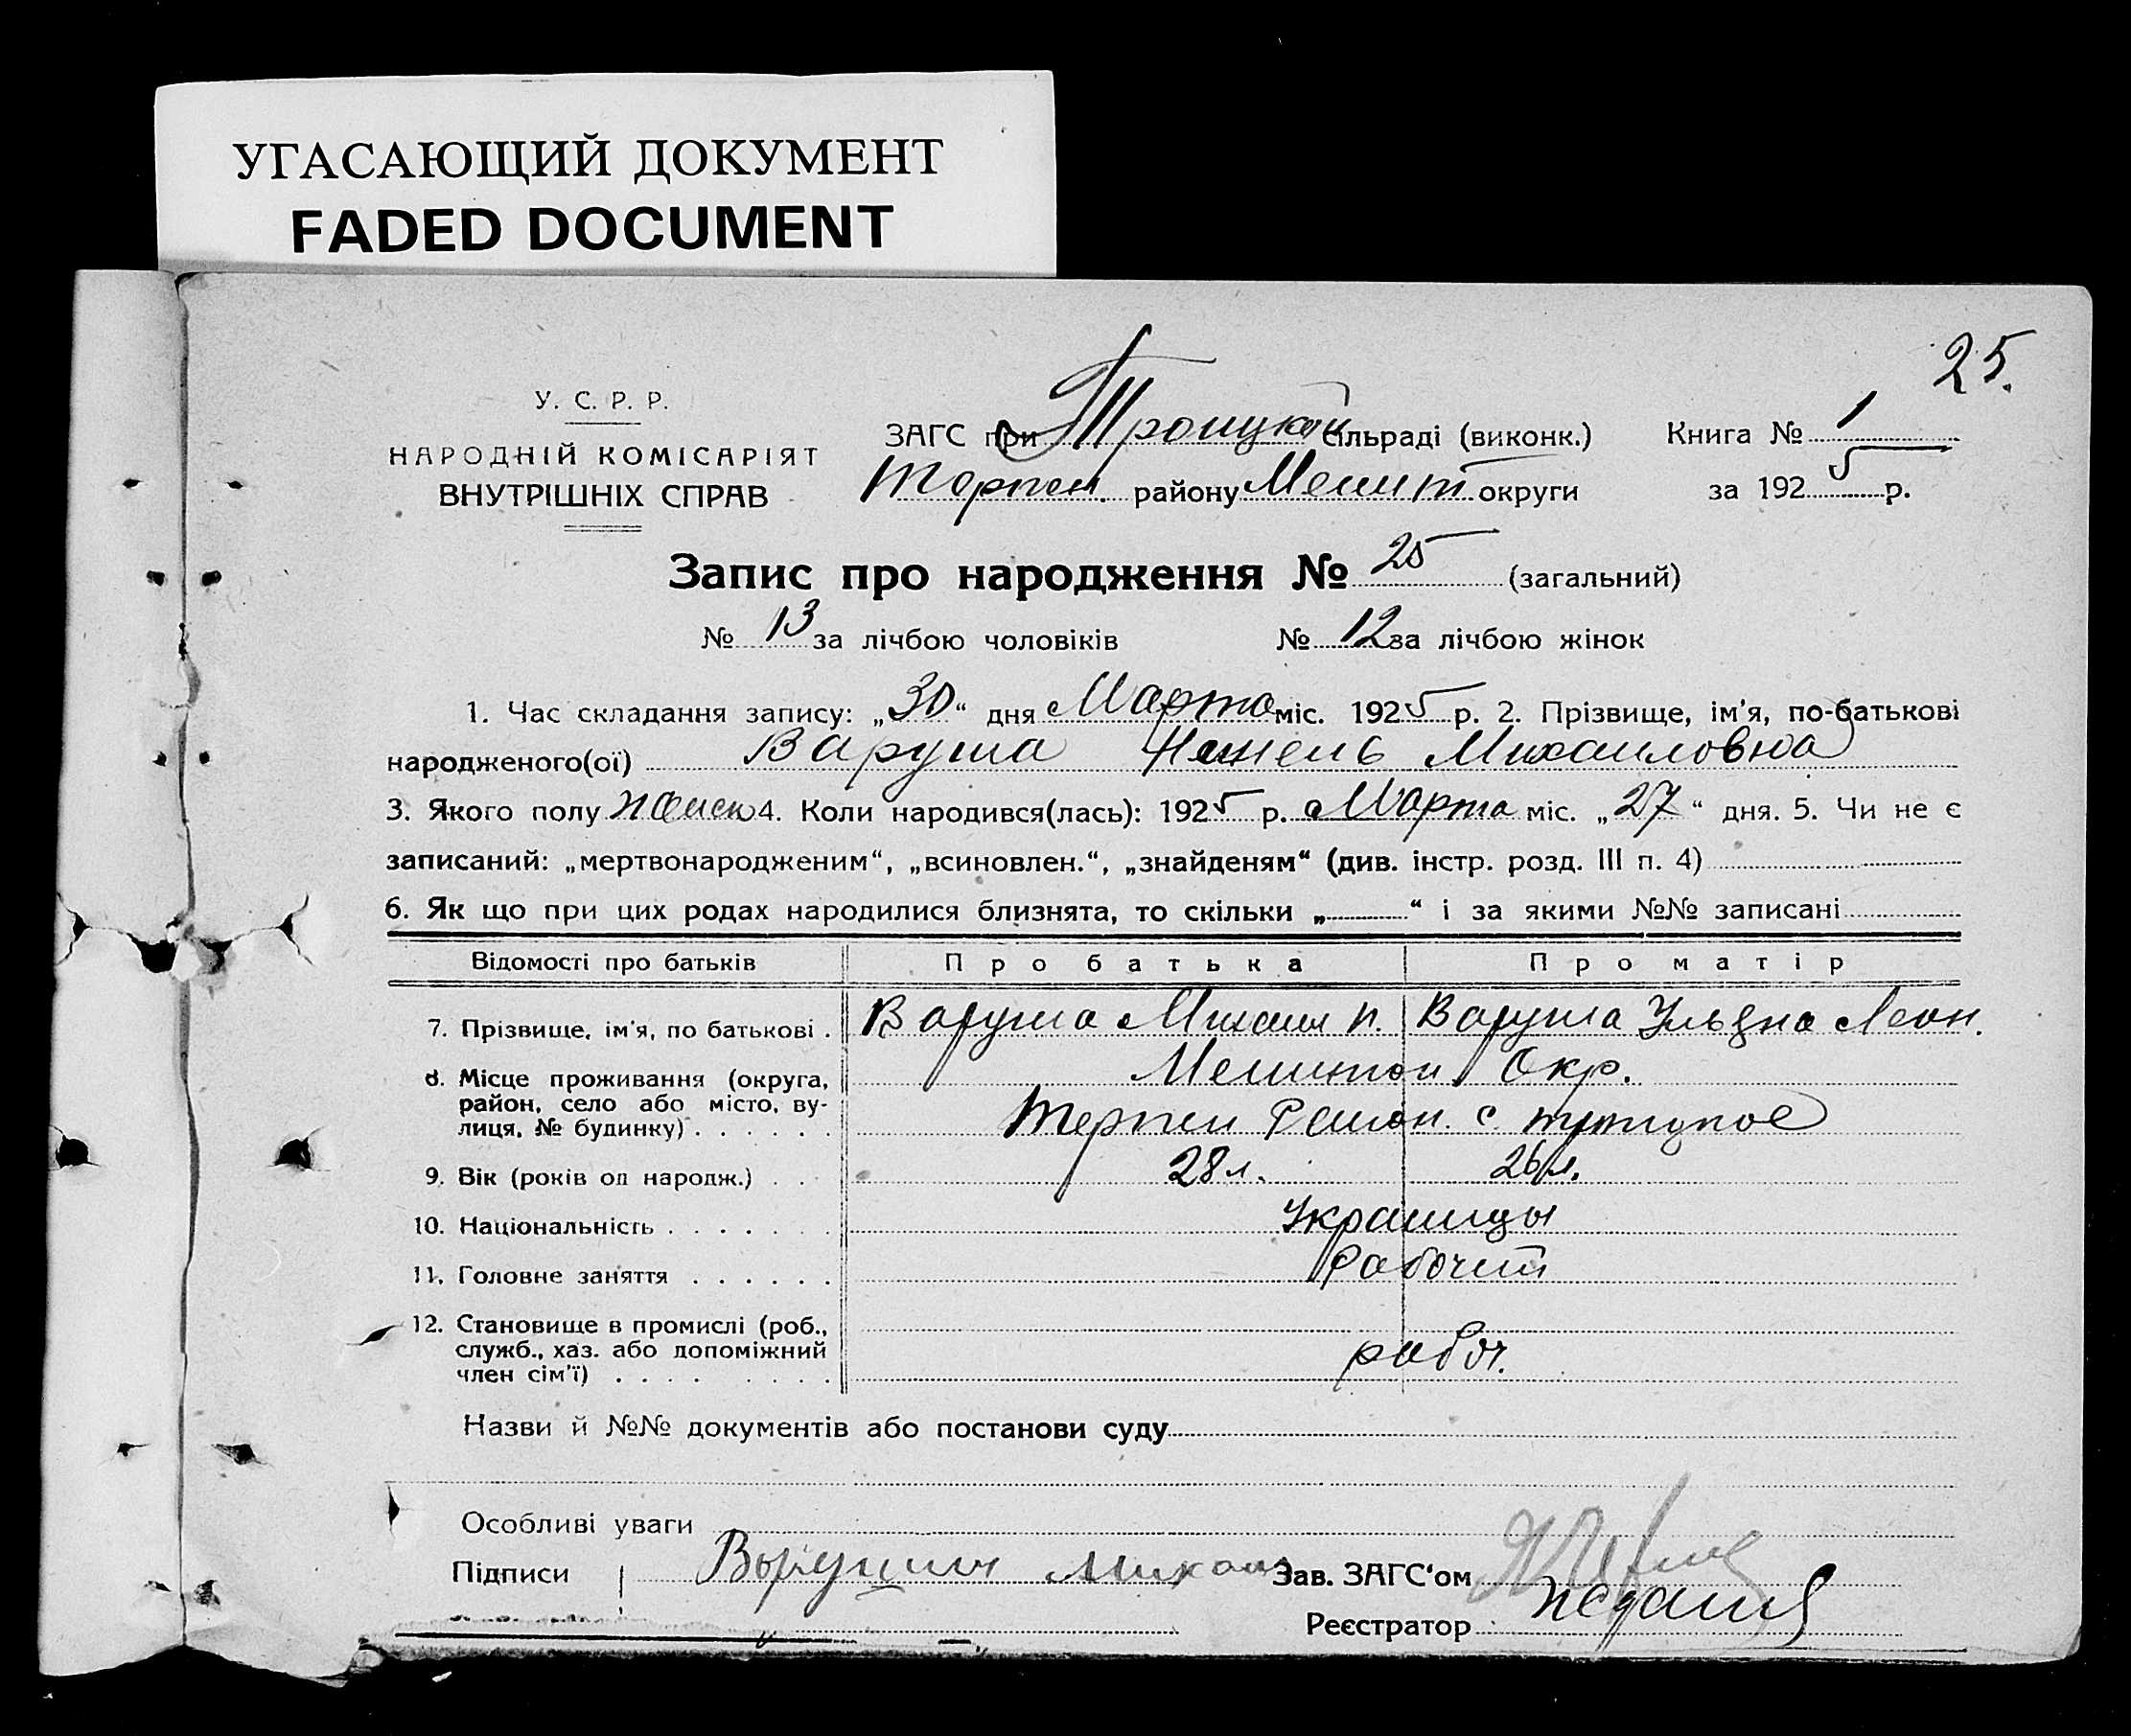 УГАСАЮЩИЙ ДОКУМЕНТ
FADED DOCUMENT
25.
У. С. Р. Р.
НАРОДНІЙ КОМІСАРІЯТ
ВНУТРІШНІХ СПРАВ
ЗАГС при Троицкой сільраді (виконк.)
Книга № 1
Терпен. району Мелит округи
за 1925 р.
Запис про народження № 25 (загальний)
№ 13 за лічбою чоловіків № 12 за лічбою жінок
1. Час складання запису: „30“ дня Марта міс. 1925 р. 2. Прізвище, ім'я, по-батькові
народженого(ої) Варуша Михаиловна
3. Якого полу женск 4. Коли народився(лась): 1925 р. Марта міс. „27“ дня. 5. Чи не є
записаний: „мертвонародженим“, „всиновлен.“, „знайденям“ (див. інстр. розд. III п. 4)
6. Як що при цих родах народилися близнята, то скільки „ “ і за якими №№ записані
Відомості про батьків
Про батька
Про матір
7. Прізвище, ім'я, по батькові . Варуша Михаил п. Варуша Ульяна Леон.
8. Місце проживання (округа, район, село або місто, вулиця, № будинку) . . . . . .
Мелитон Окр.
Терпен Район. с.
9. Вік (років од народж.) . . 28 л. 26 л.
10. Національність . . . . . . . Украинцы
11. Головне заняття . . . . . . Рабочий
12. Становище в промислі (роб., служб., хаз. або допоміжний член сім'ї) . . . . . . . .
рабоч.
Назви й №№ документів або постанови суду
Особливі уваги
Підписи Михаил Зав. ЗАГС'ом
Реєстратор